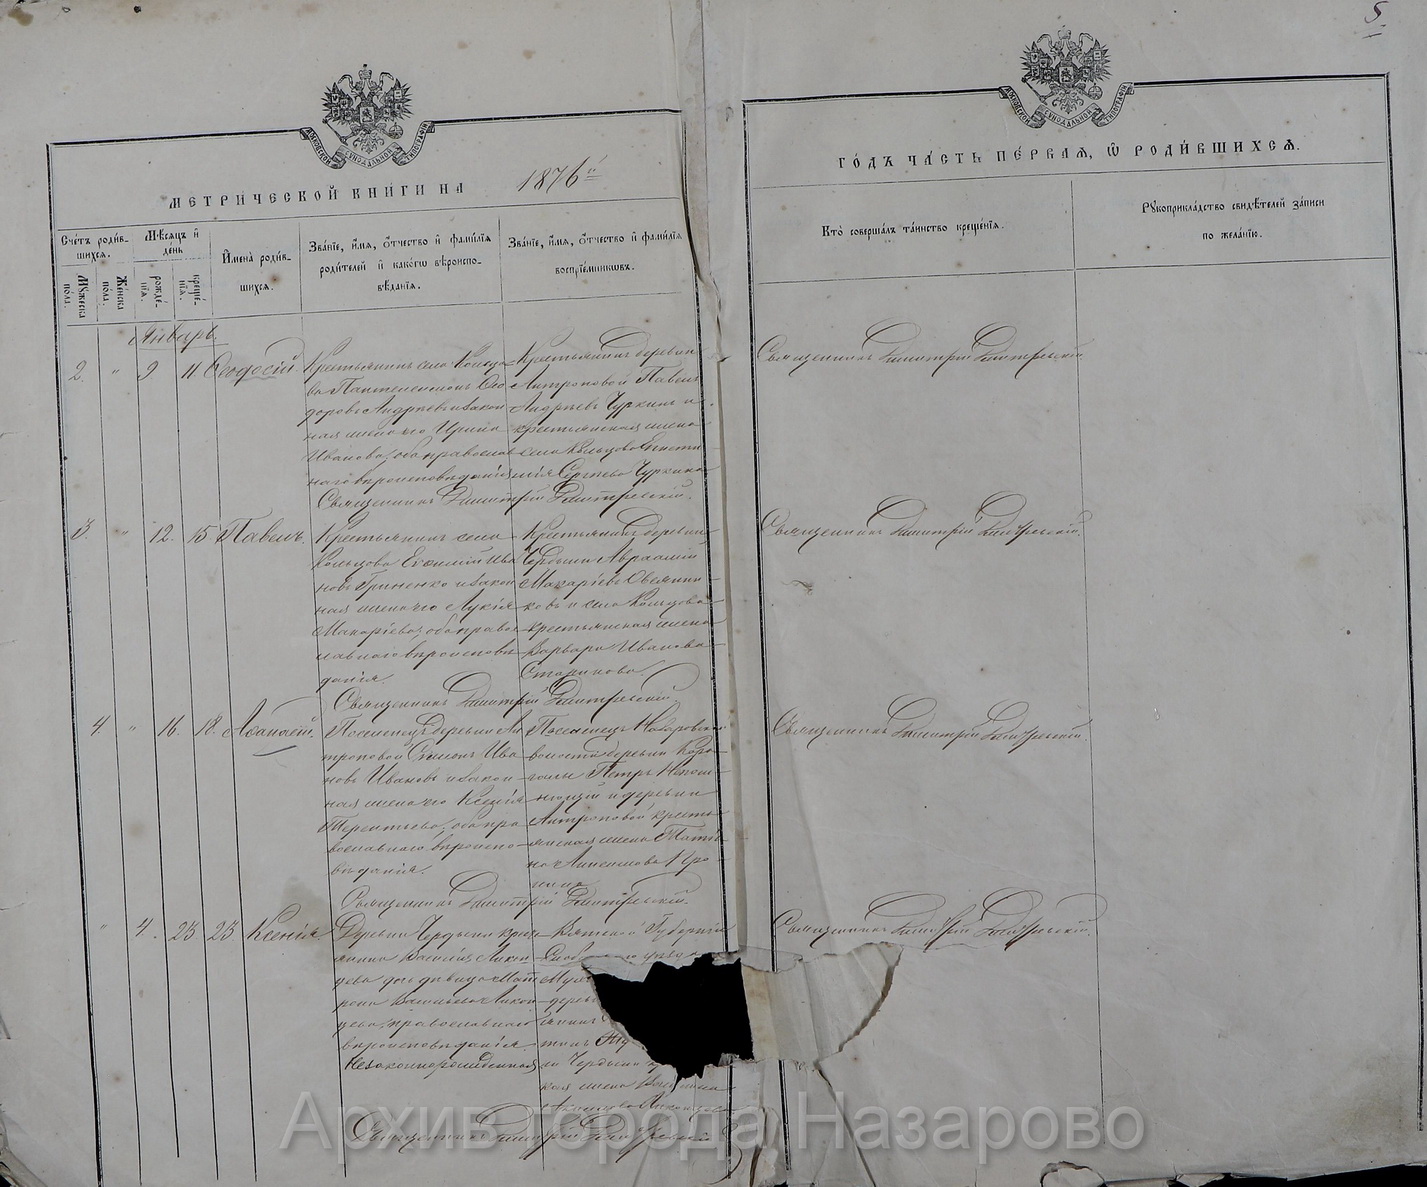 5
МЕТРИЧЕСКОЙ КНИГИ НА 1876й
ГОДЪ ЧАСТЬ ПЕРВАЯ, Ѡ РОДИВШИХСЯ.
Счетъ родив-
шихся.
Мѣсяцъ и
день
Имена родив-
шихся.
Званіе, имя, отчество и фамилія
родителей и какогѡ вѣроиспо-
вѣданія.
Званіе, имя, отчество и фамилія
воспріемниковъ.
Кто совершалъ таинство крещенія.
Рукоприкладство свидѣтелей записи
по желанію.
Мужеска
пола.
Женска
пола.
рожде-
нія.
креще-
нія.
Январь.
2. " 9 11 Ѳеодосій
Крестьянинъ села Кольцо-
ва Пантелеимонъ Ѳео
доровъ Андреевъ и закон
ная жена его Ирина
Иванова, оба православ
наго вѣроисповѣданія
Крестьянинъ деревни
Антроповой Павелъ
Андреевъ Чуркинъ и
крестьянская жена
села Кольцова
Сергѣева Чуркина
Священникъ Димитрій Димитревскій.
Священникъ Димитрій Димитревскій.
3. " 12. 15 Павелъ.
Крестьянинъ села
Кольцова Ива
новъ Гриненко и закон
ная жена его Лукія
Макаріева, оба право
славнаго вѣроисповѣ
данія.
Крестьянинъ деревни
Чердыни Авраамій
Макаріевъ Овсянни-
ковъ и села Кольцова
крестьянская жена
Варвара Иванова
Старикова.
Священникъ Димитрій Димитревскій.
Священникъ Димитрій Димитревскій.
4. " 16. 18. Аѳанасій.
Поселенецъ деревни Ан
троповой Симонъ Ива
новъ Ивановъ и закон
ная жена его Ксенія
Терентьева, оба пра
вославнаго вѣроиспо-
вѣданія.
Поселенецъ Назаровской
волости деревни
Петръ Непом-
нющій и деревни
Антроповой кресть
янская жена Татья
на Анисимова
Священникъ Димитрій Димитревскій.
Священникъ Димитрій Димитревскій.
" 4. 23 23 Ксенія
Деревни Чердыни крест
янина Василія
дочь дѣвица Мат
рона Васильева
православнаго
вѣроисповѣданія.
Незаконнорожденная
Вятской Губерніи
дерев
Чердыни
кая жена
Священникъ Димитрій Димитревскій
Священникъ Димитрій Димитревскій.
Архив города Назарово